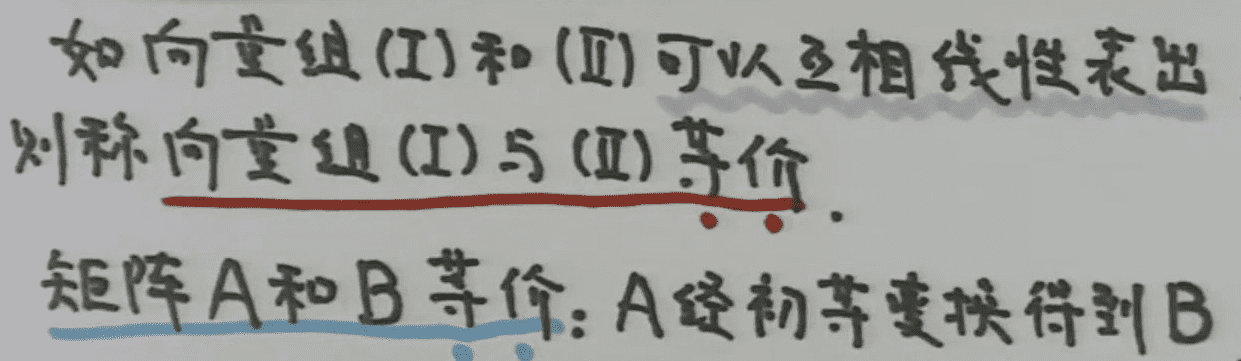 如向量组(I)和(II)可以互相线性表出
则称向量组(I)与(II)等价.
矩阵A和B等价:A经初等变换得到B